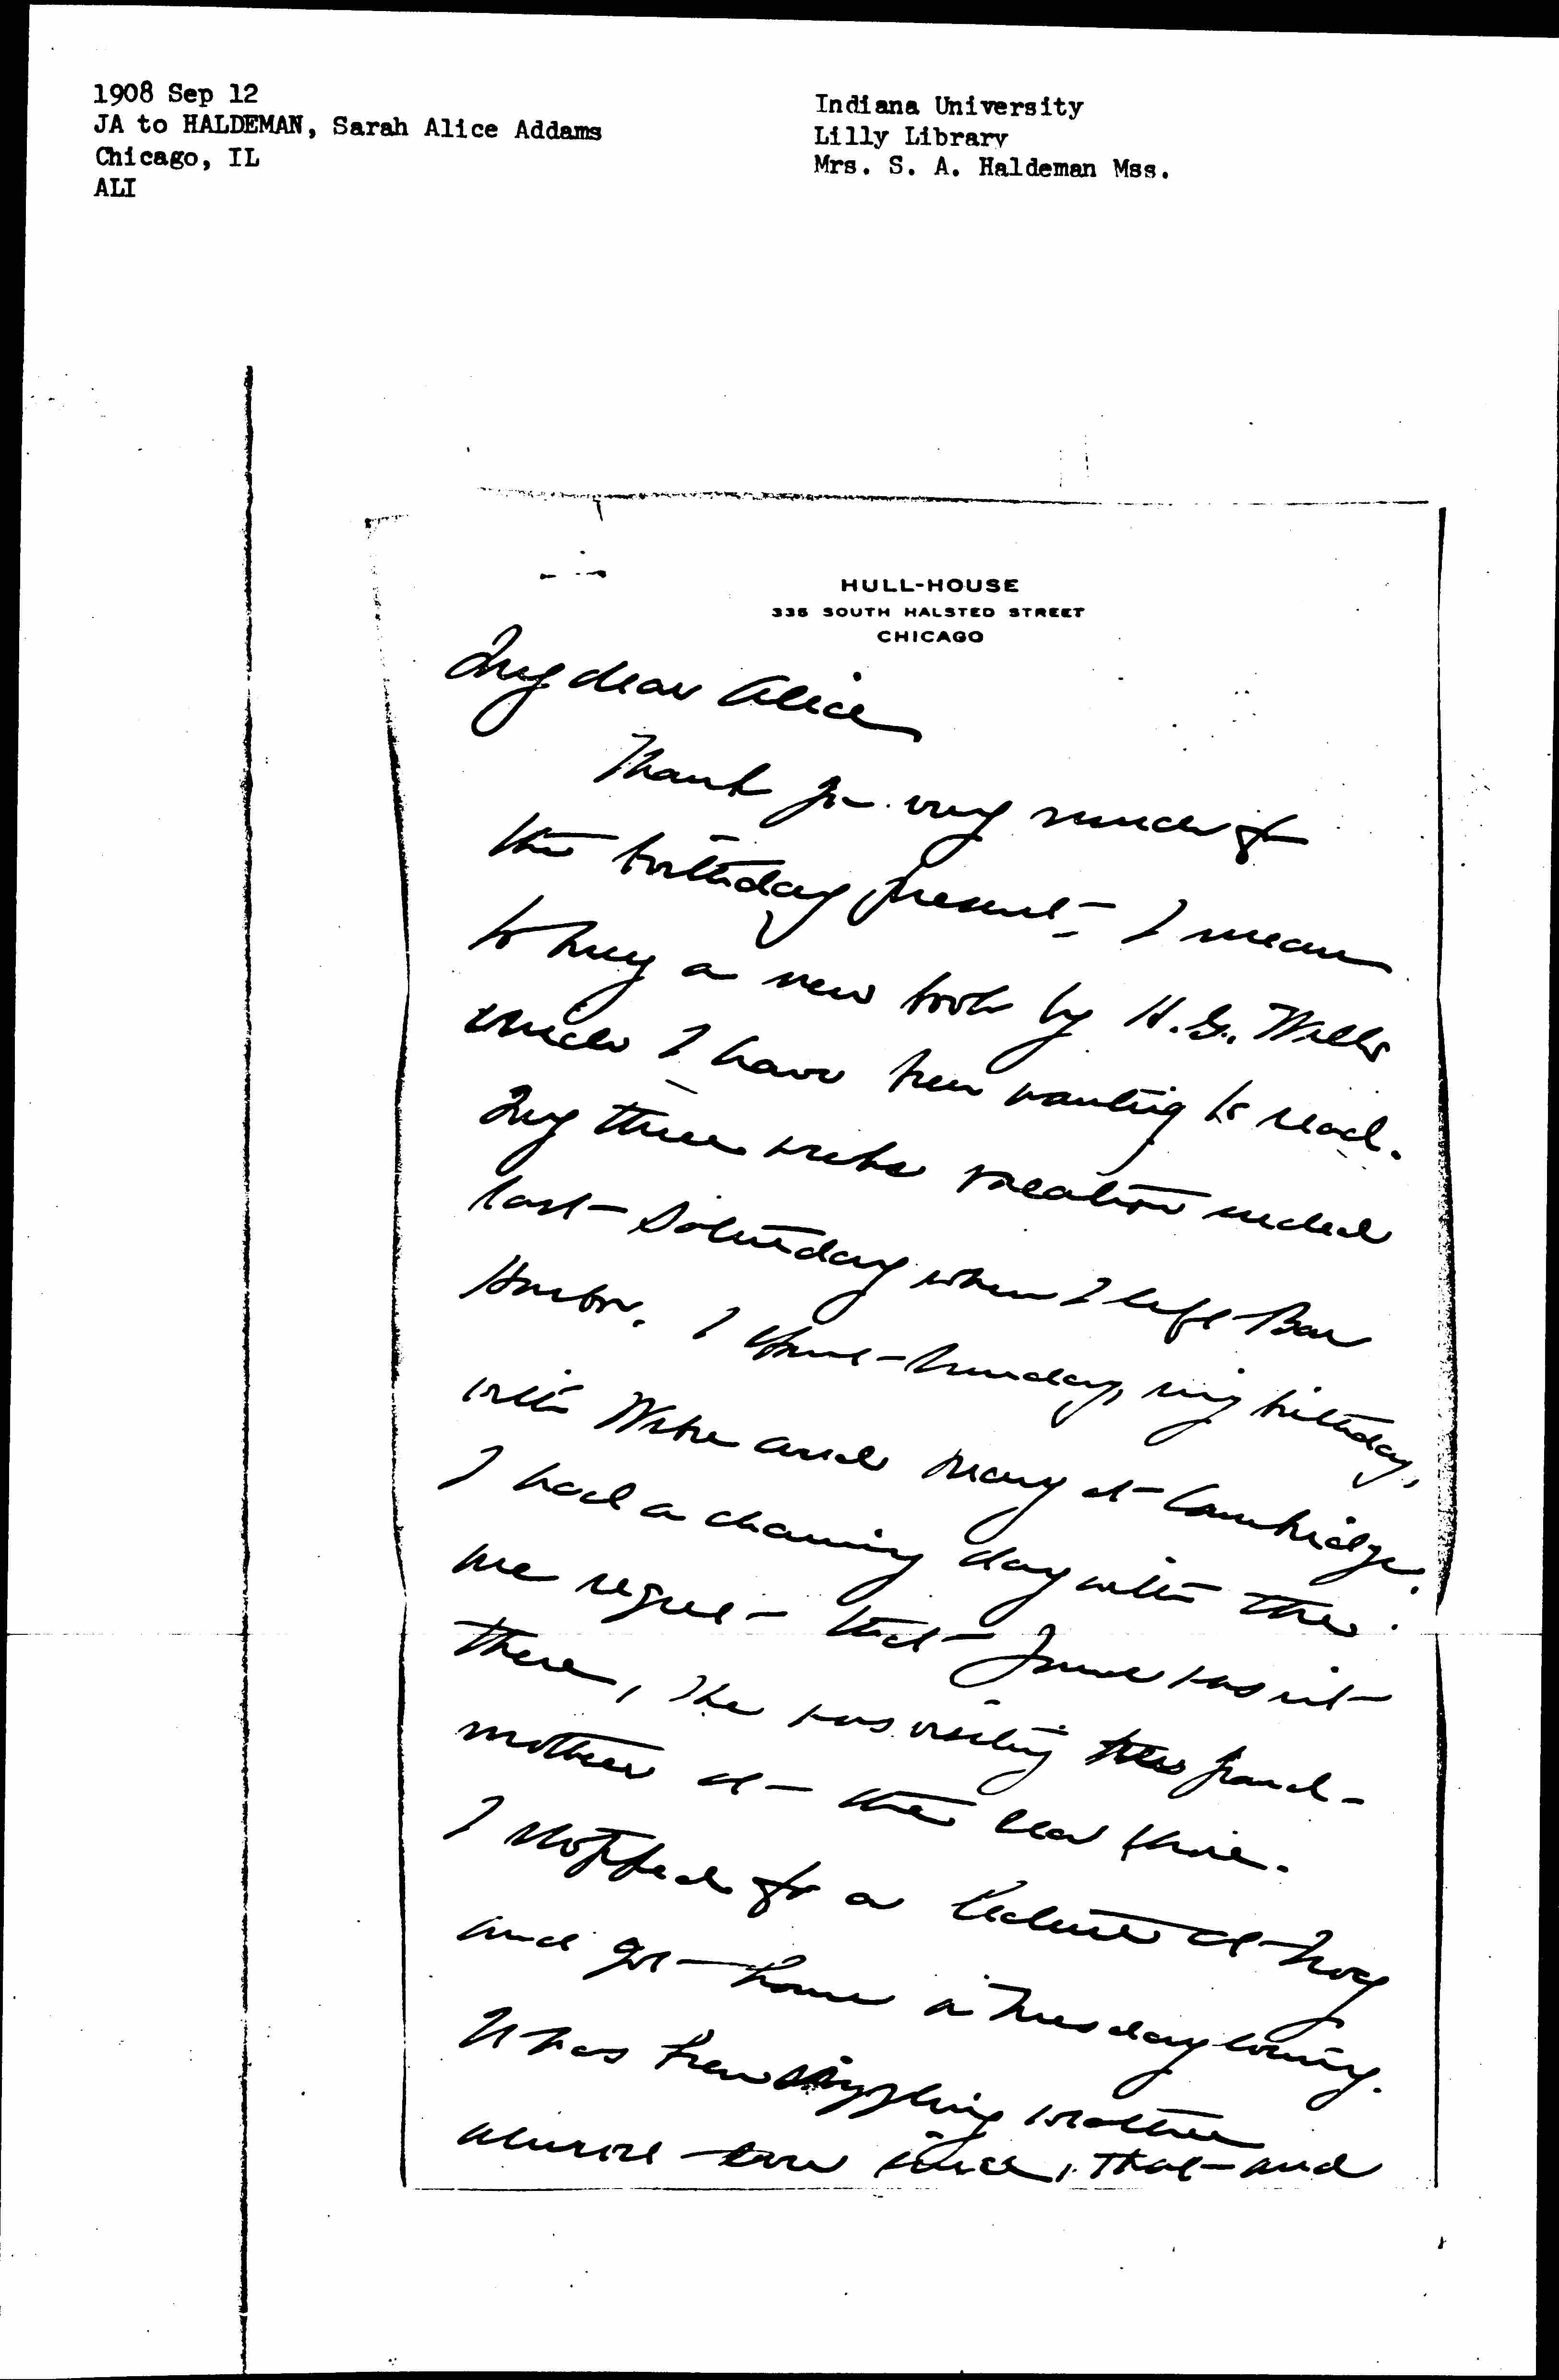 1908 Sep 12
JA to HALDEMAN, Sarah Alice Addams
Chicago, IL
ALI
Indiana University
Lilly Library
Mrs. S. A. Haldeman Mss.
HULL-HOUSE
335 SOUTH HALSTED STREET
CHICAGO
My dear Alice
Thank you very much for
the birthday present - I mean
to buy a new book by H. G. Wells
which I have been wanting to read.
My three weeks vacation ended
last Saturday when I left Bar
Harbor. I spent Sunday, my birthday,
with Webre and Mary at Cambridge.
I had a charming day with the
one regret that was not
there, she was visiting her grand-
mother at the sea shore.
I stopped for a lecture at Troy
and got home on Tuesday evening.
It has been weather
almost ever since, that and